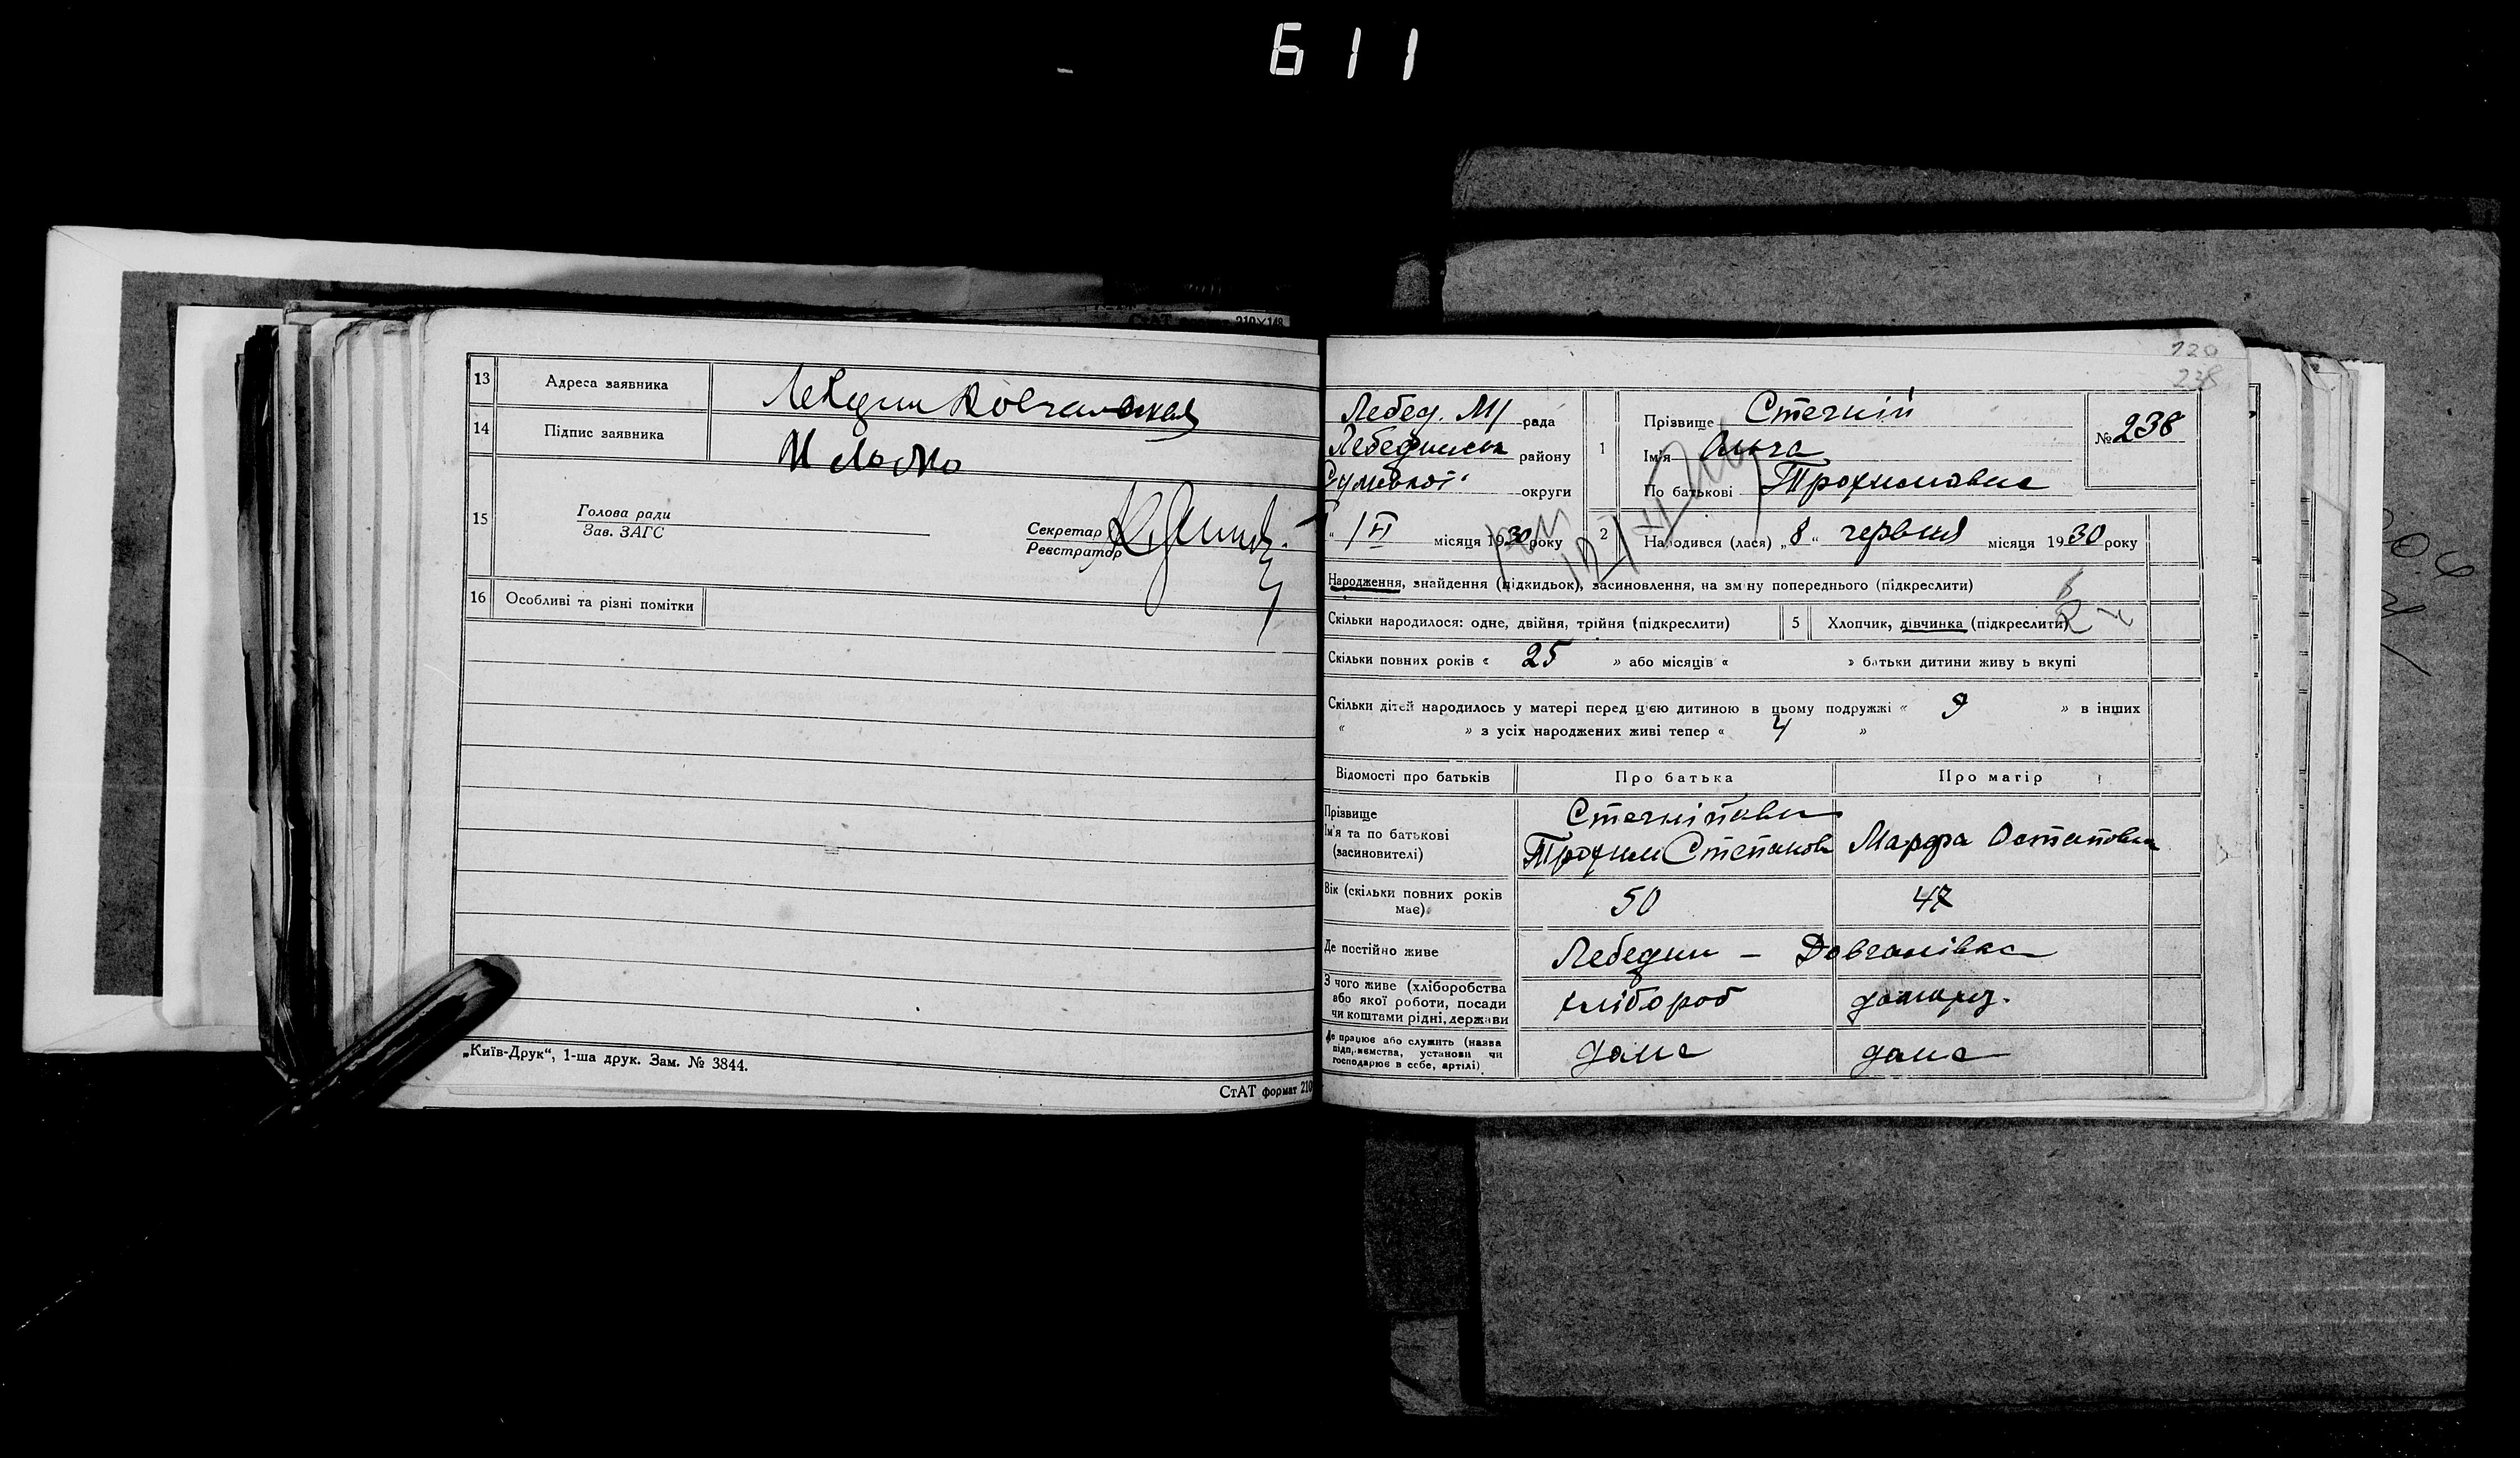 611
СтАТ 210×148
13 Адреса заявника Лебедин Довгалевская
14 Підпис заявника Ильмо
15 Голова ради
Зав. ЗАГС
Секретар
Реєстратор
16 Особливі та різні помітки
„Київ-Друк“, 1-ша друк. Зам. № 3844.
СтАТ формат 210
120
238
Лебед. М/ рада
Лебединськ району
Сумської округи
місяця 1930 року
1 Прізвище Стечній
Ім'я Ольга
По батькові Трохимовна
№ 238
2 Народився (лася) „8“ червня місяця 1930 року
Народження, знайдення (підкидьок), засиновлення, на зміну попереднього (підкреслити)
Скільки народилося: одне, двійня, трійня (підкреслити) 5 Хлопчик, дівчинка (підкреслити)
Скільки повних років « 25 » або місяців « » батьки дитини живу ь вкупі
Скільки дітей народилось у матері перед цією дитиною в цьому подружжі « 9 » в інших
« » з усіх народжених живі тепер « 4 »
Відомості про батьків Про батька Про матір
Прізвище
Ім'я та по батькові
(засиновителі)
Трохим Степанов Марфа Остаповна
Вік (скільки повних років
має) 50 47
Де постійно живе Лебедин - Довгалівка
З чого живе (хліборобства
або якої роботи, посади
чи коштами рідні, держави
хлібороб домгосп.
Де працює або служить (назва
підприємства, установи чи
господарює в себе, артілі)
дома дома